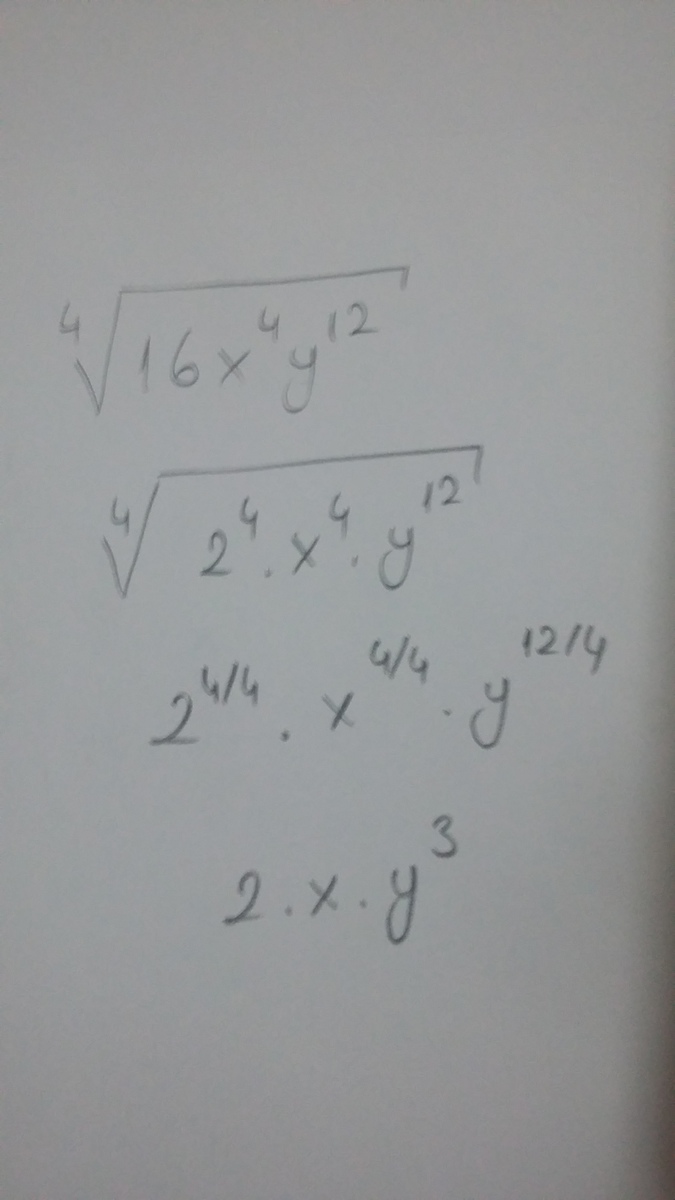 ⁴√16x⁴y¹²
⁴√2⁴.x⁴.y¹²
2⁴/⁴.x⁴/⁴.y¹²/⁴
2.x.y³